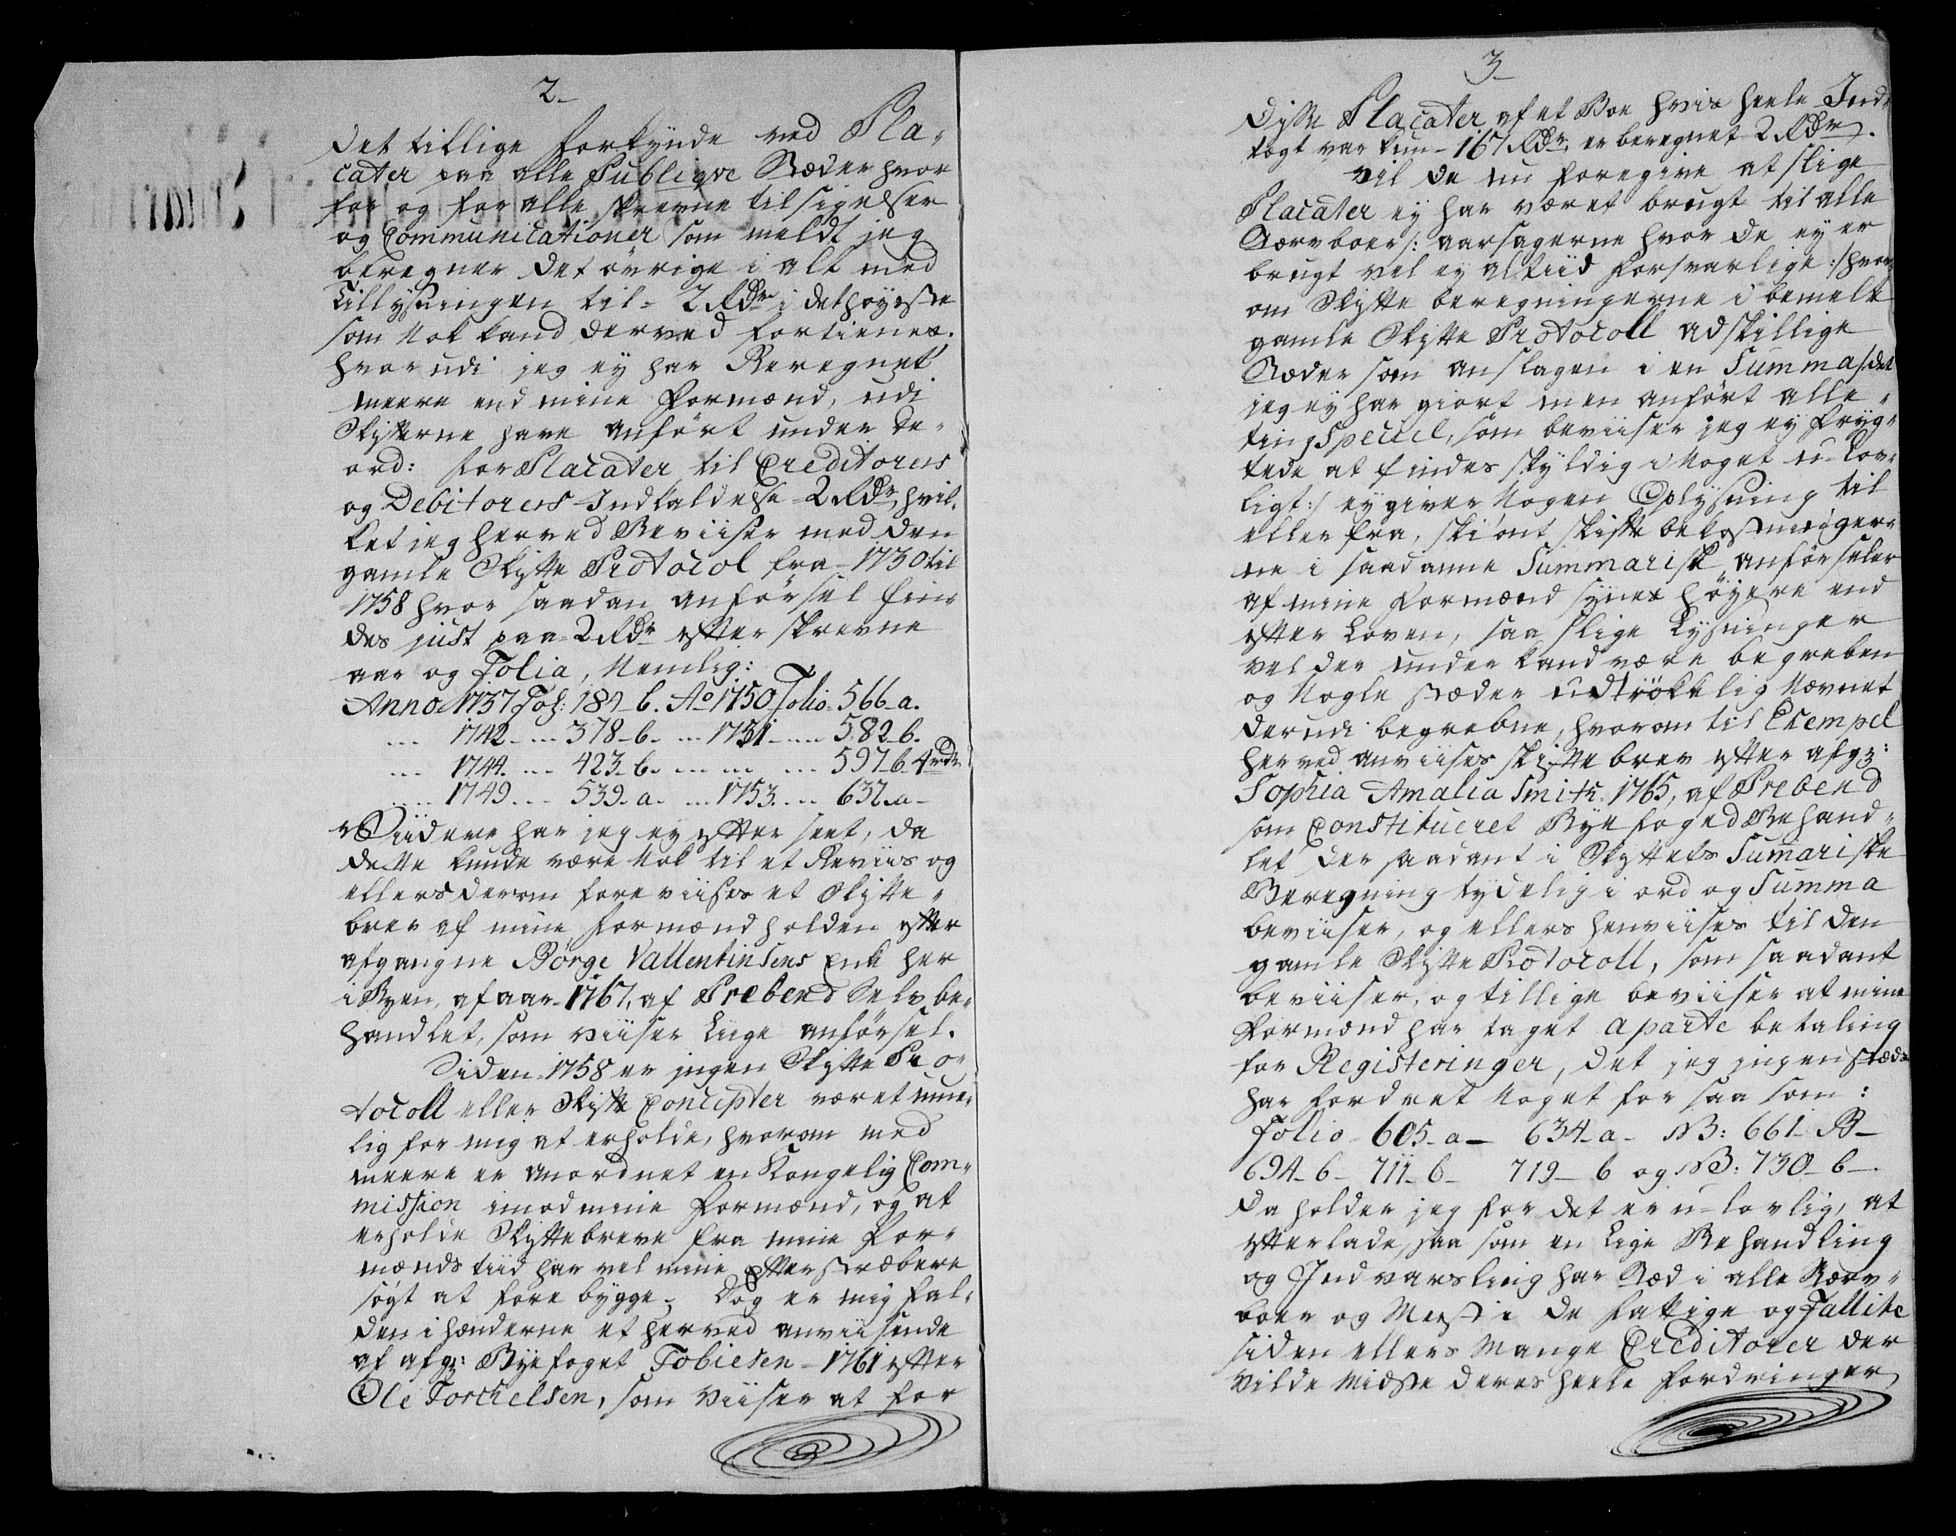 2_
det tillige forkynde ved Pla-
cater paa alle Publiqve Stæder hvor
for og for alle skrevne tilsigelser
og Communicationer som meldt jeg
beregner det övrige i alt med
Tillysningen til - 2 Rdr i det höyeste
som Nok kand derved fortienes.
hvorudi jeg ey har Beregnet
meere end mine Formænd, udi
Skifterne have anfört under de
ord: for Placater til Creditorers
og Debitorers Indkaldelse 2 Rdr, hvil-
ket jeg herved Beviiser med den
gamle Skifte Protocol fra - 1730 til
1758 hvor saadan anförsel fin-
des just paa - 2 Rdr efter skrevne
aar og Folia, Nemlig:
Anno 1737 Fol: 189_b. Ao 1750 Folio - 566_a.
... 1742 ... 378_b. ... 1751 ... 582_b.
... 1744. ... 423_b. ... ... ... 597_b 4rdr
... 1749 ... 539_a. ... 1753 ... 637_a_
Viidere har jeg ey efter seet, da
dette kunde være Nok til et Beviis og
ellers derom foreviises et Skifte-
brev af mine Formænd holden efter
afgangne Börge Vallentinsens Enke her
i Byen, af aar - 1767, af Prebend Selv be-
handlet, som viiser Liige anförsel.
Siden 1758 er jngen Skifte Pro-
tocoll eller Skifte Concepter været mue-
lig for mig at erholde, hvorom med
meere er anordnet en Kongelig Com-
mission imod mine Formænd, og at
erholde Skiftebreve fra mine For-
mænds tiid har vel mine Efterstræbere
sögt at forebygge; Dog er mig fal-
den i hænderne et herved anviisende
af afg: Byefoget Tobiesen - 1761 efter
Ole Torchelsen, som viiser at for
3_
disse Placater af et Boe hvis heele Ind-
tægt var kun - 167 Rdr, er beregnet 2 Rdr.
Vil de nu foregive at slige
Placater ey har været brugt til alle
Stervboer /: aarsagerne hvor de ey er
brugt vel ey altiid forsvarlige :/ hvor-
om Skifte beregningerne i bemelte
gamle Skifte Protocoll adskillige
Stæder som anslagen i en Summa /: det
jeg ey har giort men anfört alle-
ting Speciel, som beviiser jeg ey fryg-
tede at findes skyldig i Noget u-lov-
ligt :/ ey giver Nogen Oplysning til
eller fra, skiönt skifte bekostninger-
ne i saadanne Summarisk anförseler
af mine Formænd synes höyere end
efter Loven, saa slige Lysninger
vel der under kand være begreben
og Nogle stæder udtrökkelig Nævnet
derudi begrebne, hvorom til Exempel
herved anviises skifte brev efter afg:
Sophia Amalia Smith 1765, af Prebend
som Constitueret Byefoged Behand-
let der saadant i Skiftets Summariske
Beregning tydelig i ord og Summa
beviiser, og ellers henviises til den
gamle Skifte Protocoll, som saadant
beviiser, og tillige beviiser at mine
Formænd har taget aparte betaling
for Registeringer, det jeg jngen stæds
har fordret Noget for saa som:
Folio - 605_a_ 634_a_ NB: 661_B_
694_b_ 711_b_ 719_b og NB: 730_b_.
Da holder jeg for det er u-lovlig, at
efterlade, saa som en Lige Behandling
og Indvarsling har Stæd i alle Sterv-
boer og Meest i de fattige og Fallite
siden ellers Mange Creditorer der
vilde Miste deres heele fordringer